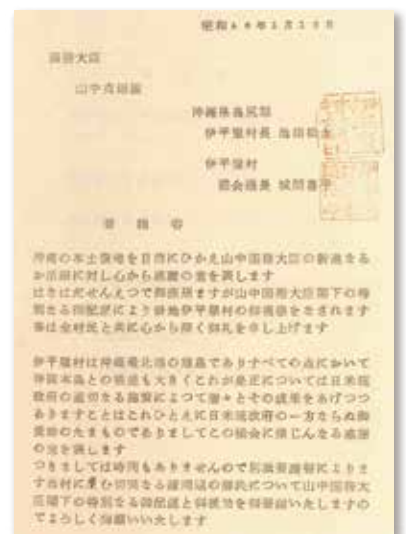 昭和46年1月10日
国務大臣
山中貞則殿
沖縄県島尻郡
伊平屋村長
伊平屋村
議会議長
要請書
沖縄の本土復帰を目前にひかえ山中国務大臣の新進なる
御活躍に対し心から感謝の意を表します
はなはだせんえつで御座居ますが山中国務大臣閣下の特
別なる御配慮により僻地伊平屋村の御視察をなされます
事は全村民と共に心から深く御礼を申し上げます
伊平屋村は沖縄最北端の離島でありすべての点において
沖縄本島との格差も大きくこれが是正については日米琉
政府の適切なる施策によつて着々とその成果をあげつつ
ありますことはこれひとえに日米琉政府の一方ならぬ御
援助のたまものでありましてこの機会に深じんなる感謝
の意を表します
つきましては時間もありませんので別紙要請書によりま
す当村に
の解決について山中国務大
臣閣下の特別なる御配慮と御援助を御願いいたしますの
でよろしく御願いいたします